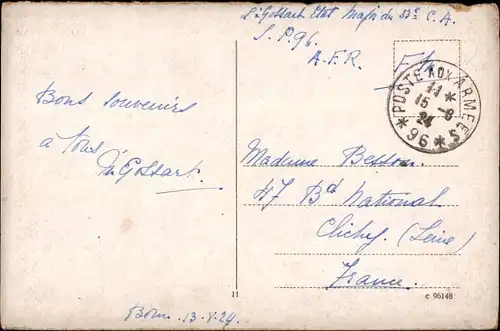 Lt Gossart Etat Major du 33e C.A.
S.P.96.
A.F.R.
F.M.
POSTE AUX ARMEES
11 *
15 - 8
24
* 96 *
Bons souvenirs
à tous
Gossart.
Madame Besson.
47 Bd National
Clichy. (Seine)
France.
13-8-24
11
c 96148